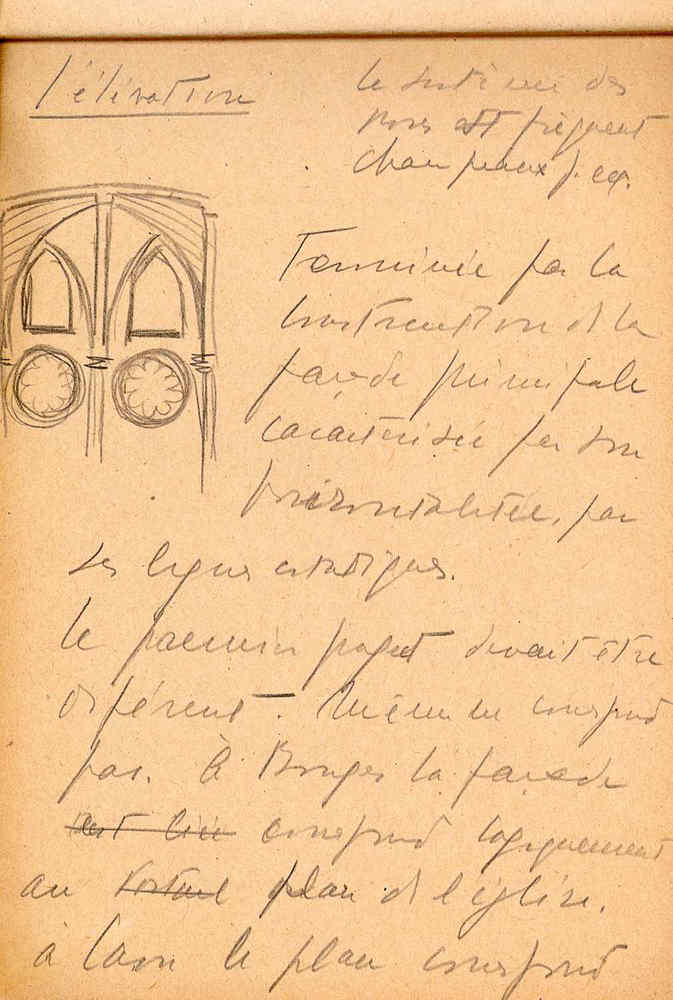 L'élévation
le système des
roses est fréquent
Champeaux p. ex.
Terminée par la
construction de la
façade principale
caractérisée par son
horizontalitée, par
ses lignes statiques.
le premier projet devait être
différent. Même ne correspond
pas. à Bourges la façade
est liée correspond logiquement
au plan de l'église.
à Laon le plan correspond